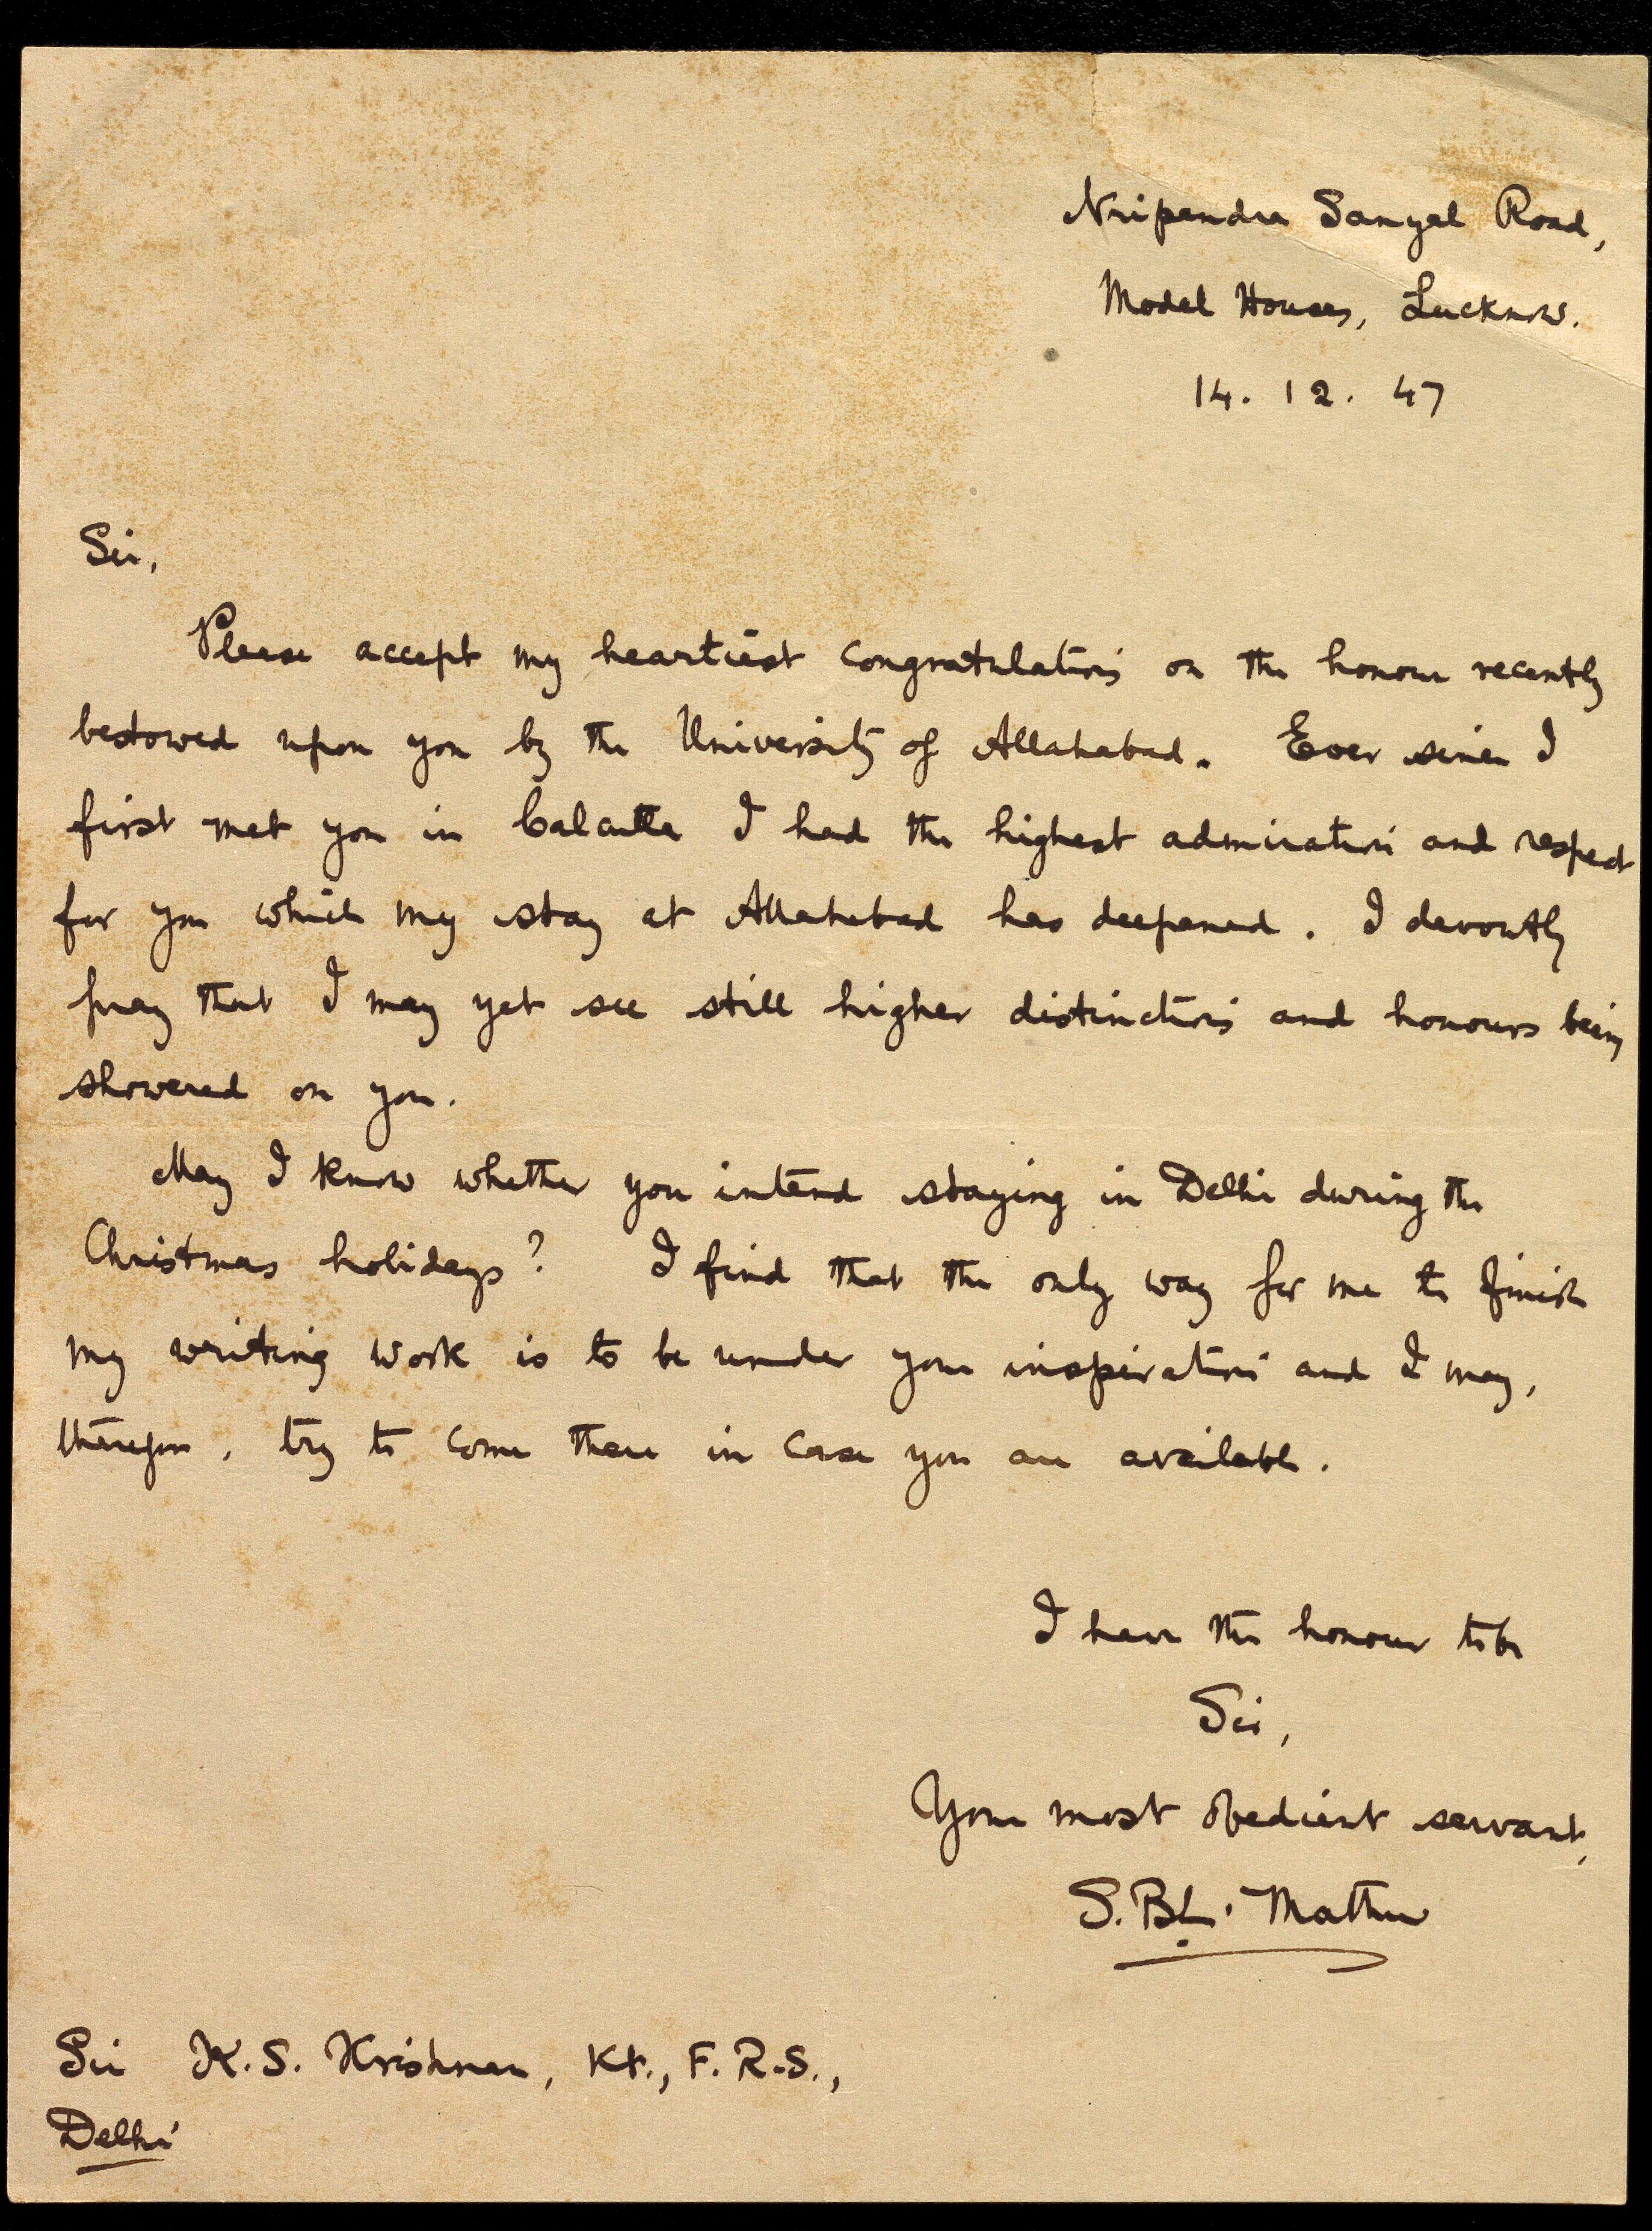 Nripendra Sanyal Road,
Model Houses, Lucknow.
14. 12. 47
Sir,
Please accept my heartiest congratulations on the honour recently
bestowed upon you by the University of Allahabad. Ever since I
first met you in Calcutta I had the highest admiration and respect
for you which my stay at Allahabad has deepened. I devoutly
pray that I may yet see still higher distinctions and honours being
showered on you.
May I know whether you intend staying in Delhi during the
Christmas holidays? I find that the only way for me to finish
my writing work is to be under your inspiration and I may,
therefore, try to come there in case you are available.
I have the honour to be
Sir,
Your most obedient servant,
S. B. L. Mathur
Sir K. S. Krishnan, Kt., F. R. S.,
Delhi